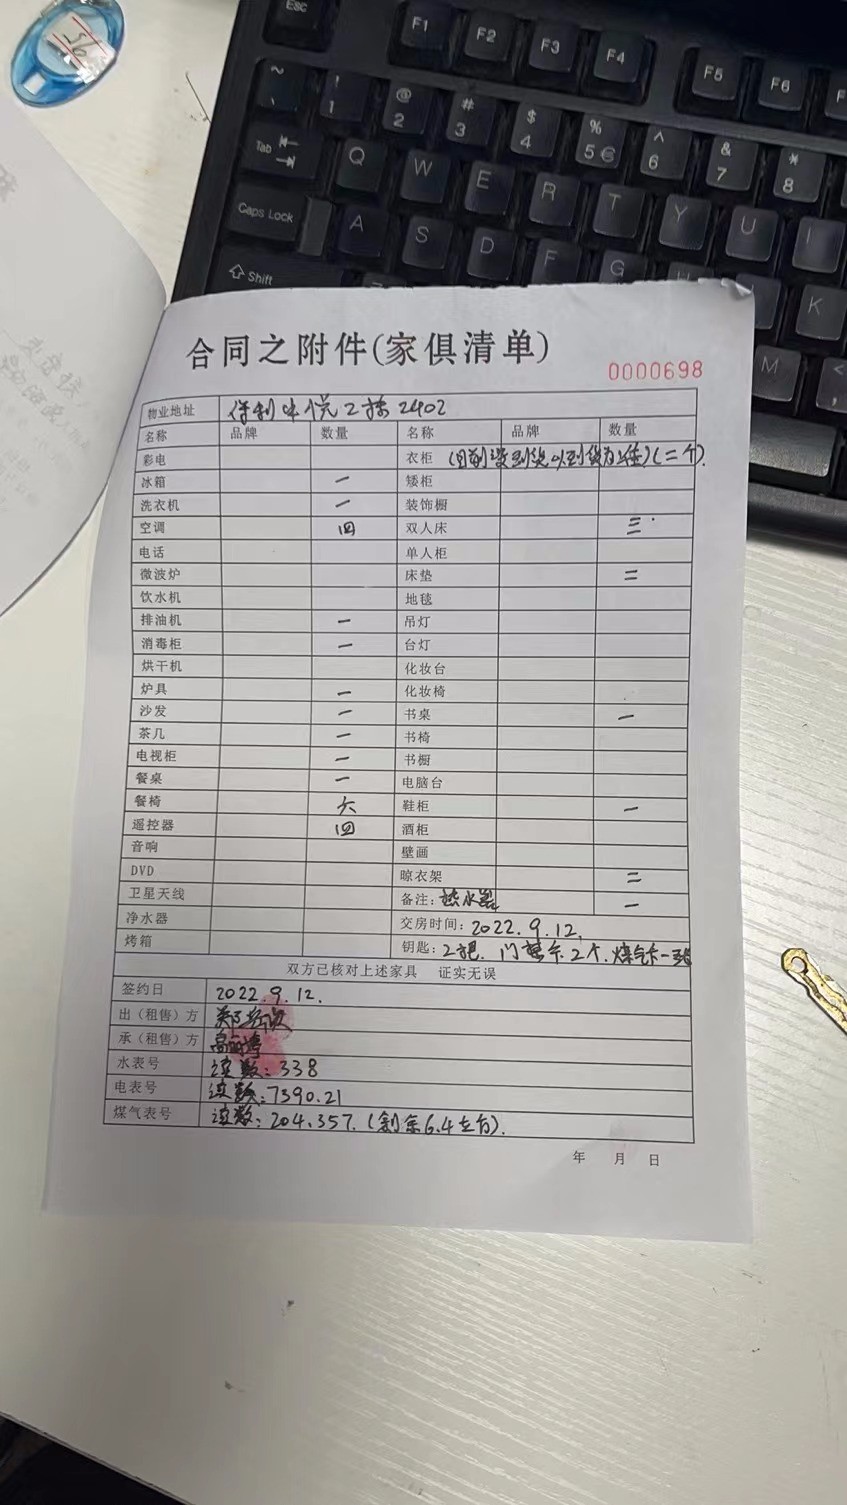 56
Esc F1 F2 F3 F4 F5 F6 F
~ ` ! 1 @ 2 # 3 $ 4 % 5 € ^ 6 & 7 * 8
Tab Q W E R T Y U I
Caps Lock A S D F G K
Shift M <
合同之附件(家俱清单)
0000698
物业地址 保利 悦2栋2402
名称 品牌 数量 名称 品牌 数量
彩电 衣柜 (二个).
冰箱 一 矮柜
洗衣机 一 装饰橱
空调 四 双人床 三
电话 单人柜
微波炉 床垫 二
饮水机 地毯
排油机 一 吊灯
消毒柜 一 台灯
烘干机 化妆台
炉具 一 化妆椅
沙发 一 书桌 一
茶几 一 书椅
电视柜 一 书橱
餐桌 一 电脑台
餐椅 六 鞋柜 一
遥控器 四 酒柜
音响 壁画
DVD 晾衣架 二
卫星天线 备注: 热水器 一
净水器 交房时间: 2022.9.12.
烤箱 钥匙: 2把. 门禁卡2个. 煤气卡一张
双方已核对上述家具 证实无误
签约日 2022.9.12.
出（租售）方
承（租售）方
水表号 读数: 338
电表号 读数: 7390.21
煤气表号 读数: 204.357. (剩余6.4立方).
年 月 日